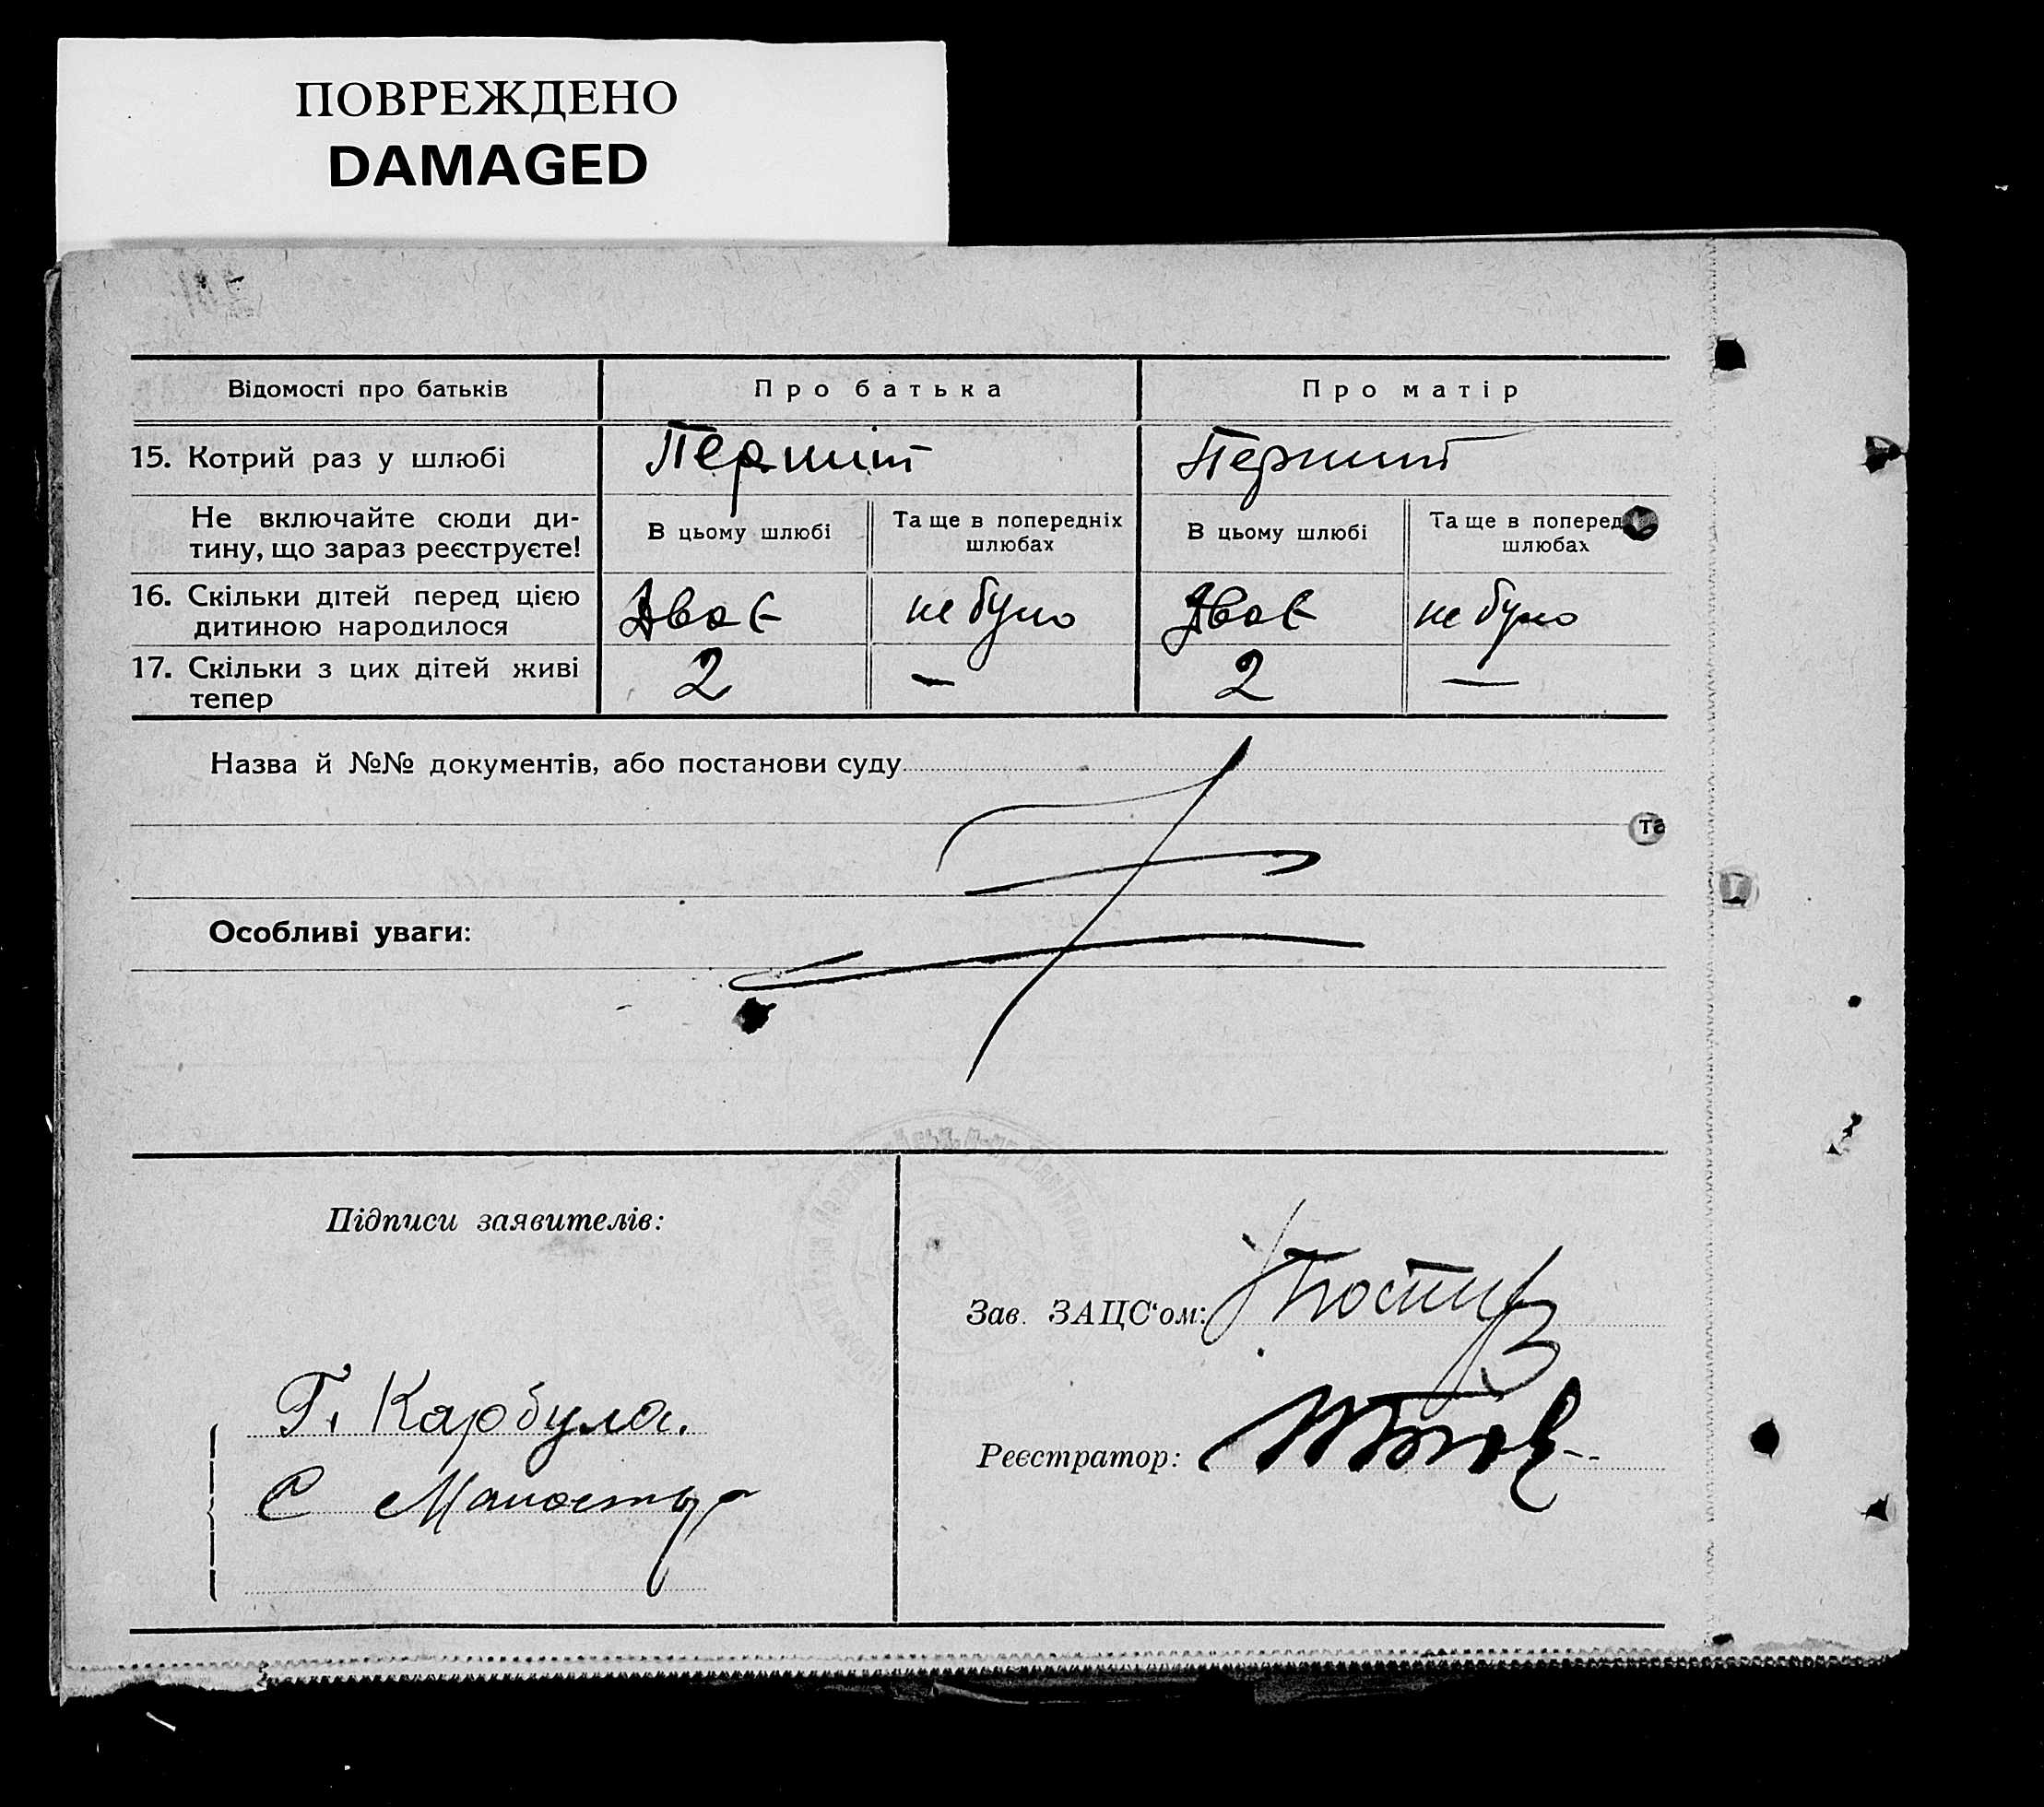 ПОВРЕЖДЕНО
DAMAGED
Відомості про батьків
Про батька
Про матір
15. Котрий раз у шлюбі
Перший
Перший
Не включайте сюди ди-
тину, що зараз реєструєте!
В цьому шлюбі
Та ще в попередніх
шлюбах
В цьому шлюбі
Та ще в поперед
шлюбах
16. Скільки дітей перед цією
дитиною народилося
Двоє
не було
Двоє
не було
17. Скільки з цих дітей живі
тепер
2
—
2
—
Назва й №№ документів, або постанови суду
та
Особливі уваги:
Підписи заявителів:
Зав. ЗАЦС‘ом:
Г. Карбула.
Реєстратор:
С